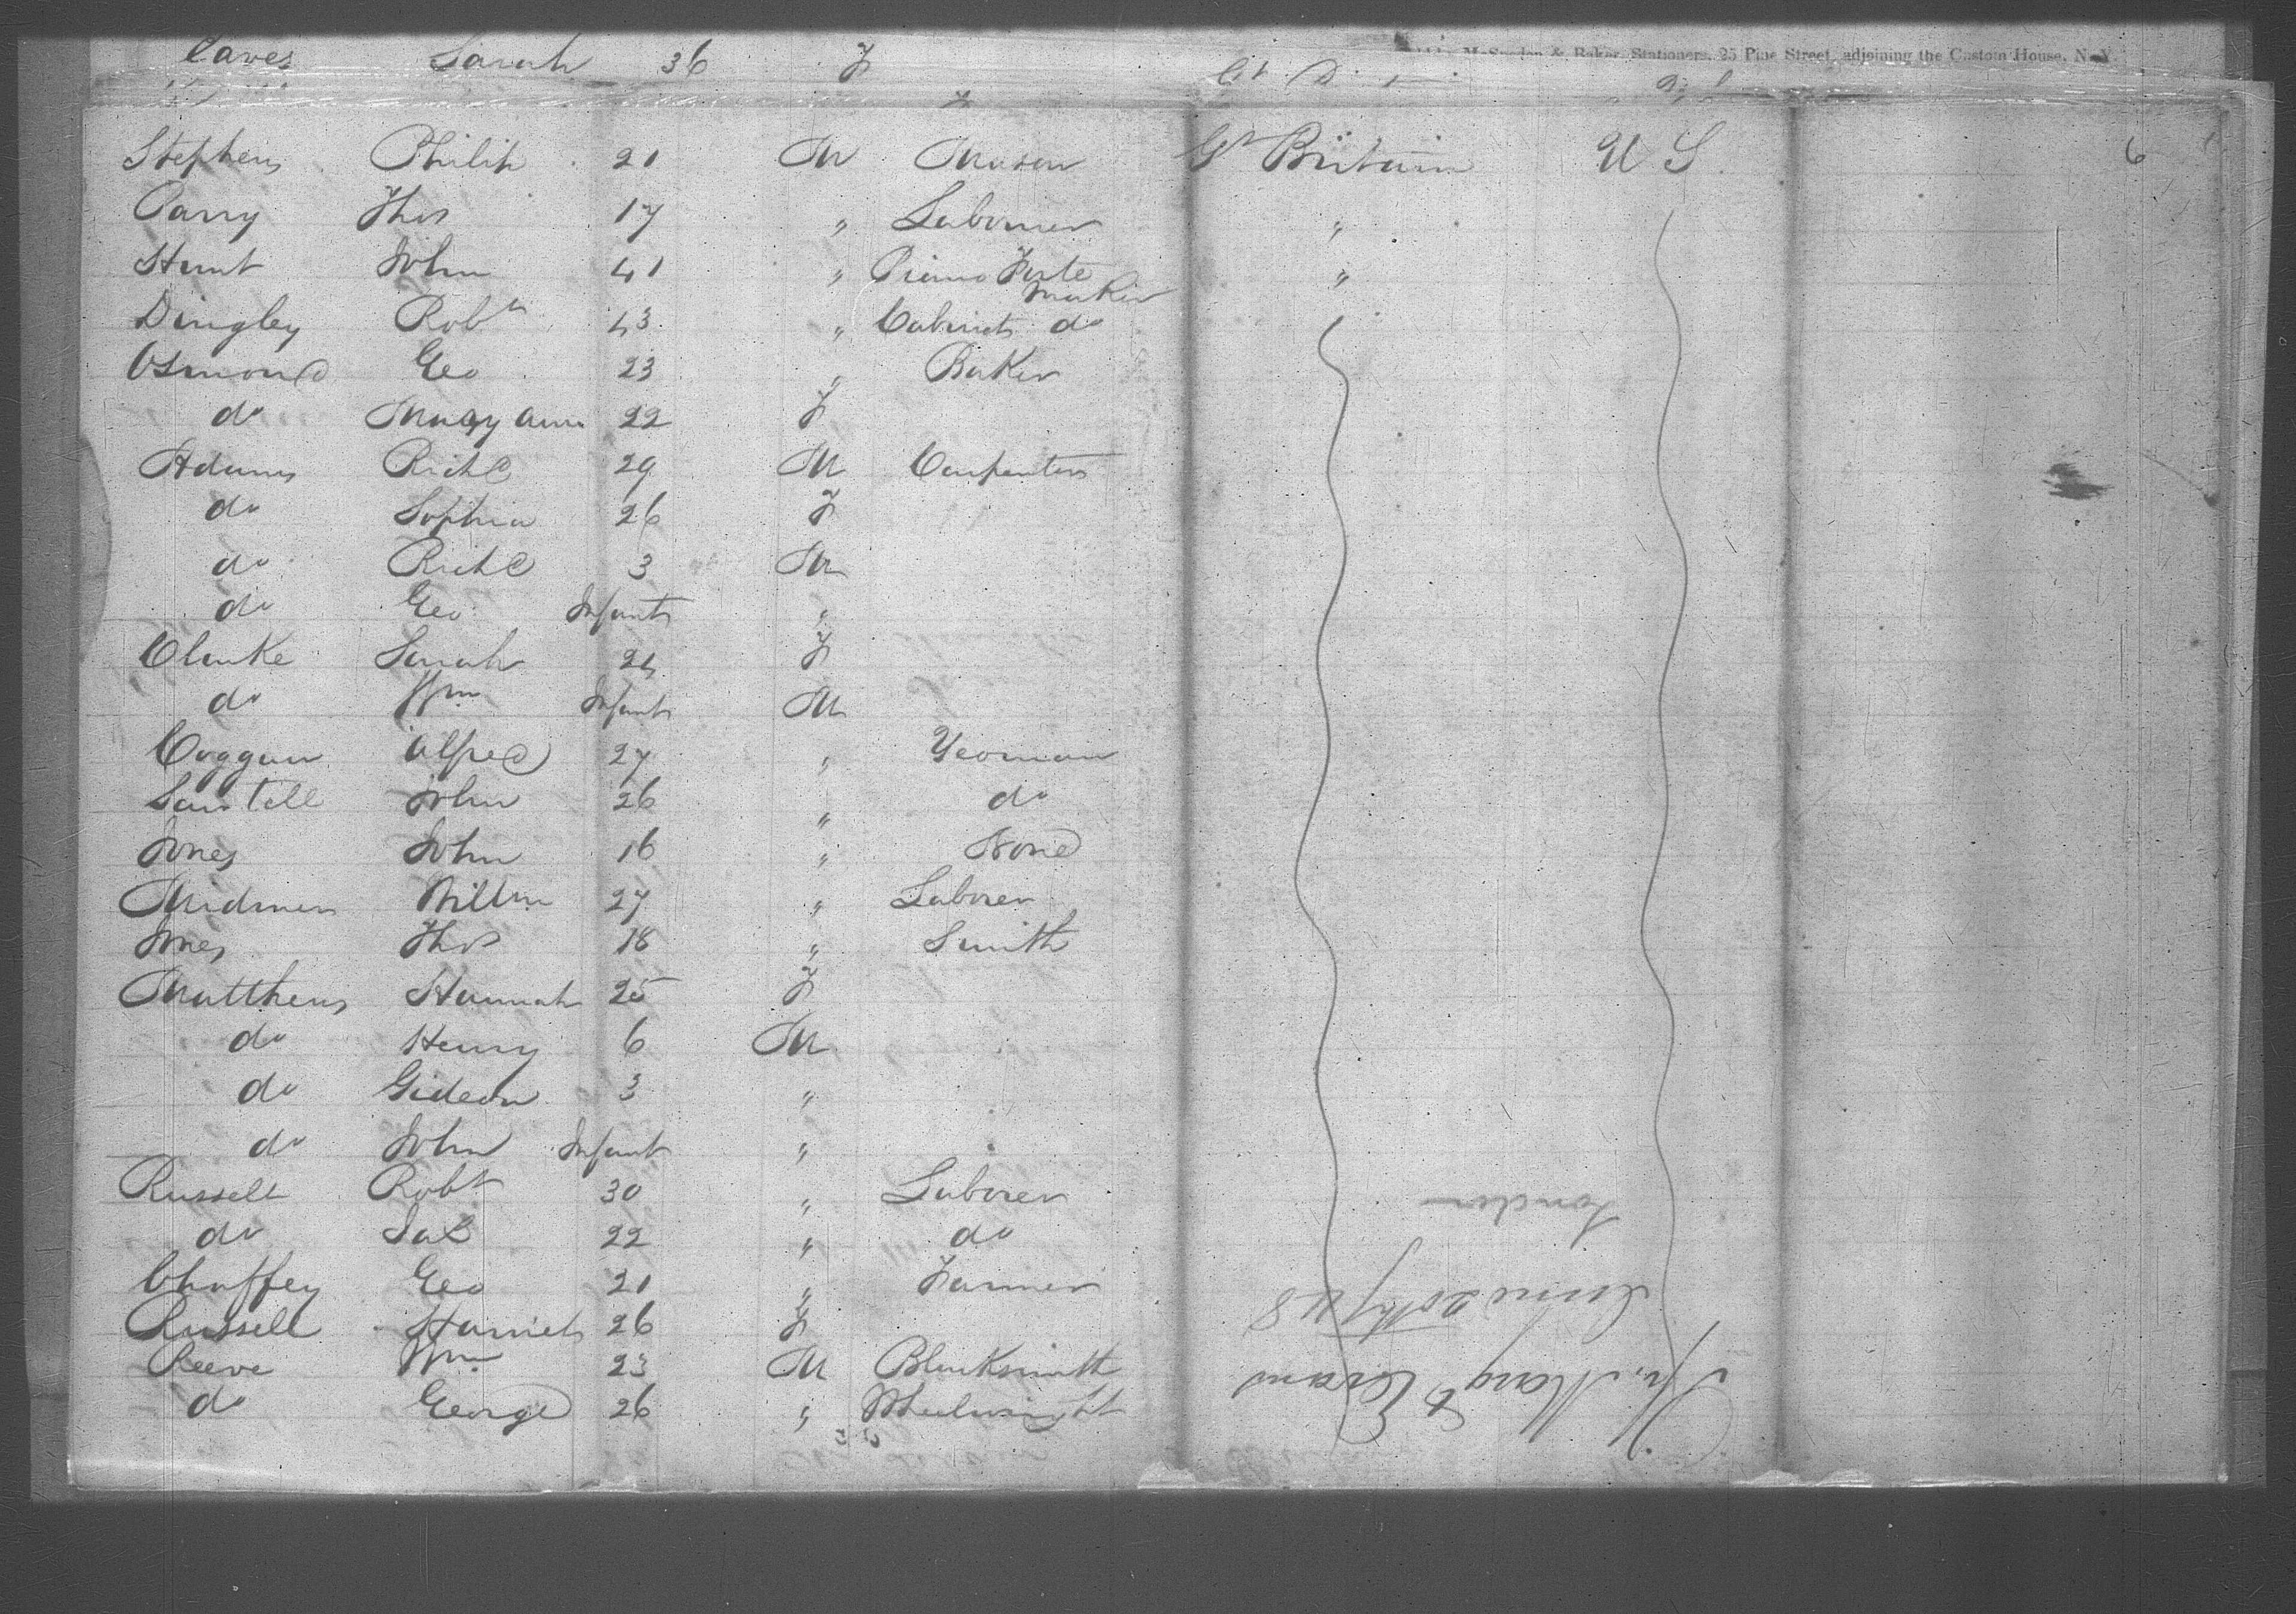 Caves Sarah 36 F
& Baker, Stationers, 25 Pine Street, adjoining the Custom House, N.Y.
Stephens Philip 21 M Mason Gt Britain U S 6
Parry Thos 17 " Labourer "
Hunt John 41 " Piano Forte maker "
Dingley Robt 43 " Cabinet do
Osmond Geo 23 " Baker
do Mary Ann 22 F
Adams Richd 29 M Carpenter
do Sophia 26 F
do Richd 3 M
do Geo Infant "
Clarke Sarah 24 F
do Wm Infant M
Coggan Alfred 27 " Yeoman
Sawtell John 26 " do
Jones John 16 " None
Willm 27 " Laborer
Jones Thos 18 " Smith
Matthews Hannah 25 F
do Henry 6 M
do Gideon 3 "
do John Infant "
Russell Robt 30 " Laborer
do 22 " do
Chaffey Geo 21 " Farmer
Russell Harriet 26 F
Reeve Wm 23 M Blacksmith
do George 26 " Wheelwright
Sh. Margt Evans
June 20th/48
London